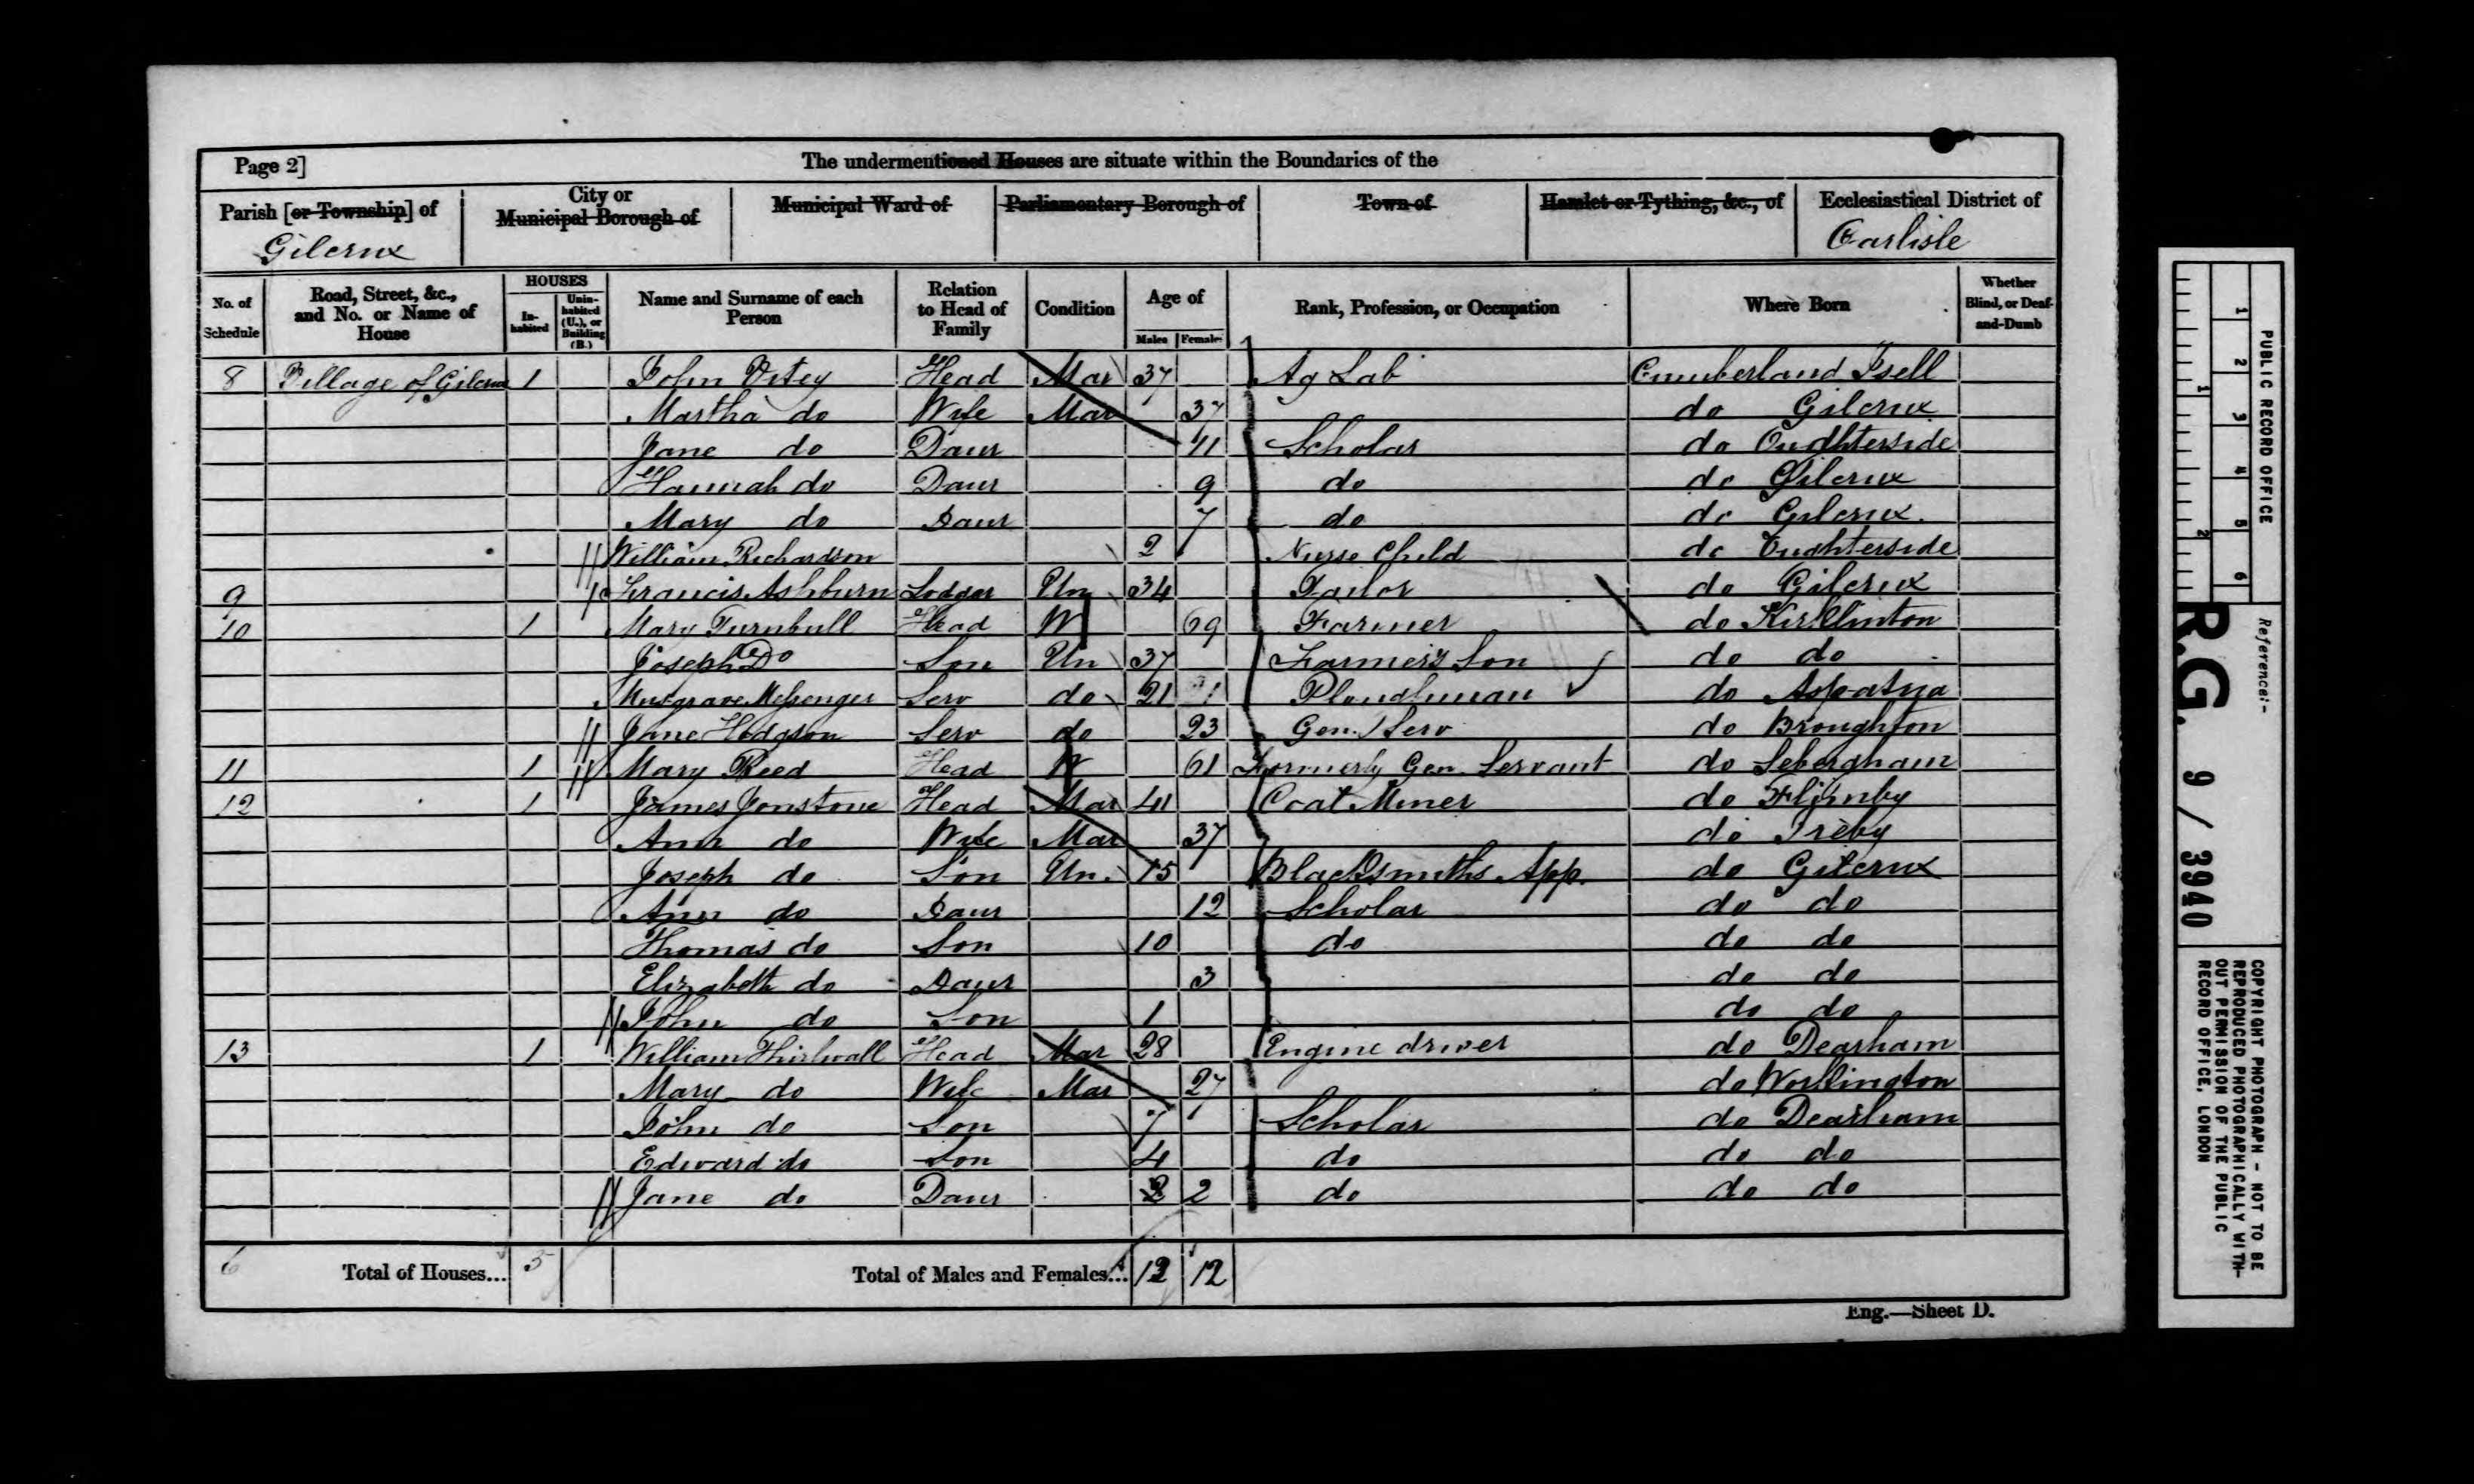 Page 2]
The undermentioned Houses are situate within the Boundaries of the
Parish [or Township] of
Gilcrux
City or
Municipal Borough of
Municipal Ward of
Parliamentary Borough of
Town of
Hamlet or Tything, &c., of
Ecclesiastical District of
Carlisle
No. of Schedule
Road, Street, &c., and No. or Name of House
HOUSES
In-habited
Unin-habited (U.), or Building (B.)
Name and Surname of each Person
Relation to Head of Family
Condition
Age of
Males Females
Rank, Profession, or Occupation
Where Born
Whether Blind, or Deaf-and-Dumb
8 Village of Gilcrux 1 John Head Mar 37 Ag Lab Cumberland Isell
Martha do Wife Mar 37 do Gilcrux
Jane do Daur 11 Scholar do Oughterside
Hannah do Daur 9 do do Gilcrux
Mary do Daur 7 do do Gilcrux
William Richardson 2 Nurse Child do Oughterside
9 Francis Ashburn Lodger Un 34 Tailor do Gilcrux
10 1 Mary Turnbull Head W 69 Farmer do Kirklinton
Joseph Do Son Un 37 Farmer's Son do do
Musgrave Messenger Serv do 21 Ploughman do Aspatria
Jane Hodgson Serv do 23 Gen. Serv do Broughton
11 1 Mary Reed Head W 61 Formerly Gen. Servant do Sebergham
12 1 James Jonstone Head Mar 41 Coal Miner do Flimby
Ann do Wife Mar 37 do Ireby
Joseph do Son Un. 15 Blacksmiths App. do Gilcrux
Ann do Daur 12 Scholar do do
Thomas do Son 10 do do do
Elizabeth do Daur 3 do do
John do Son 1 do do
13 1 William Thirlwall Head Mar 28 Engine driver do Dearham
Mary do Wife Mar 27 do Workington
John do Son 7 Scholar do Dearham
Edward do Son 4 do do do
Jane do Daur 2 2 do do do
6 Total of Houses... 5 Total of Males and Females... 12 12
Eng.—Sheet D.
1 2 3 4 5 6
1 2
PUBLIC RECORD OFFICE
Reference:-
R.G. 9 / 3940
COPYRIGHT PHOTOGRAPH - NOT TO BE
REPRODUCED PHOTOGRAPHICALLY WITH-
OUT PERMISSION OF THE PUBLIC
RECORD OFFICE, LONDON